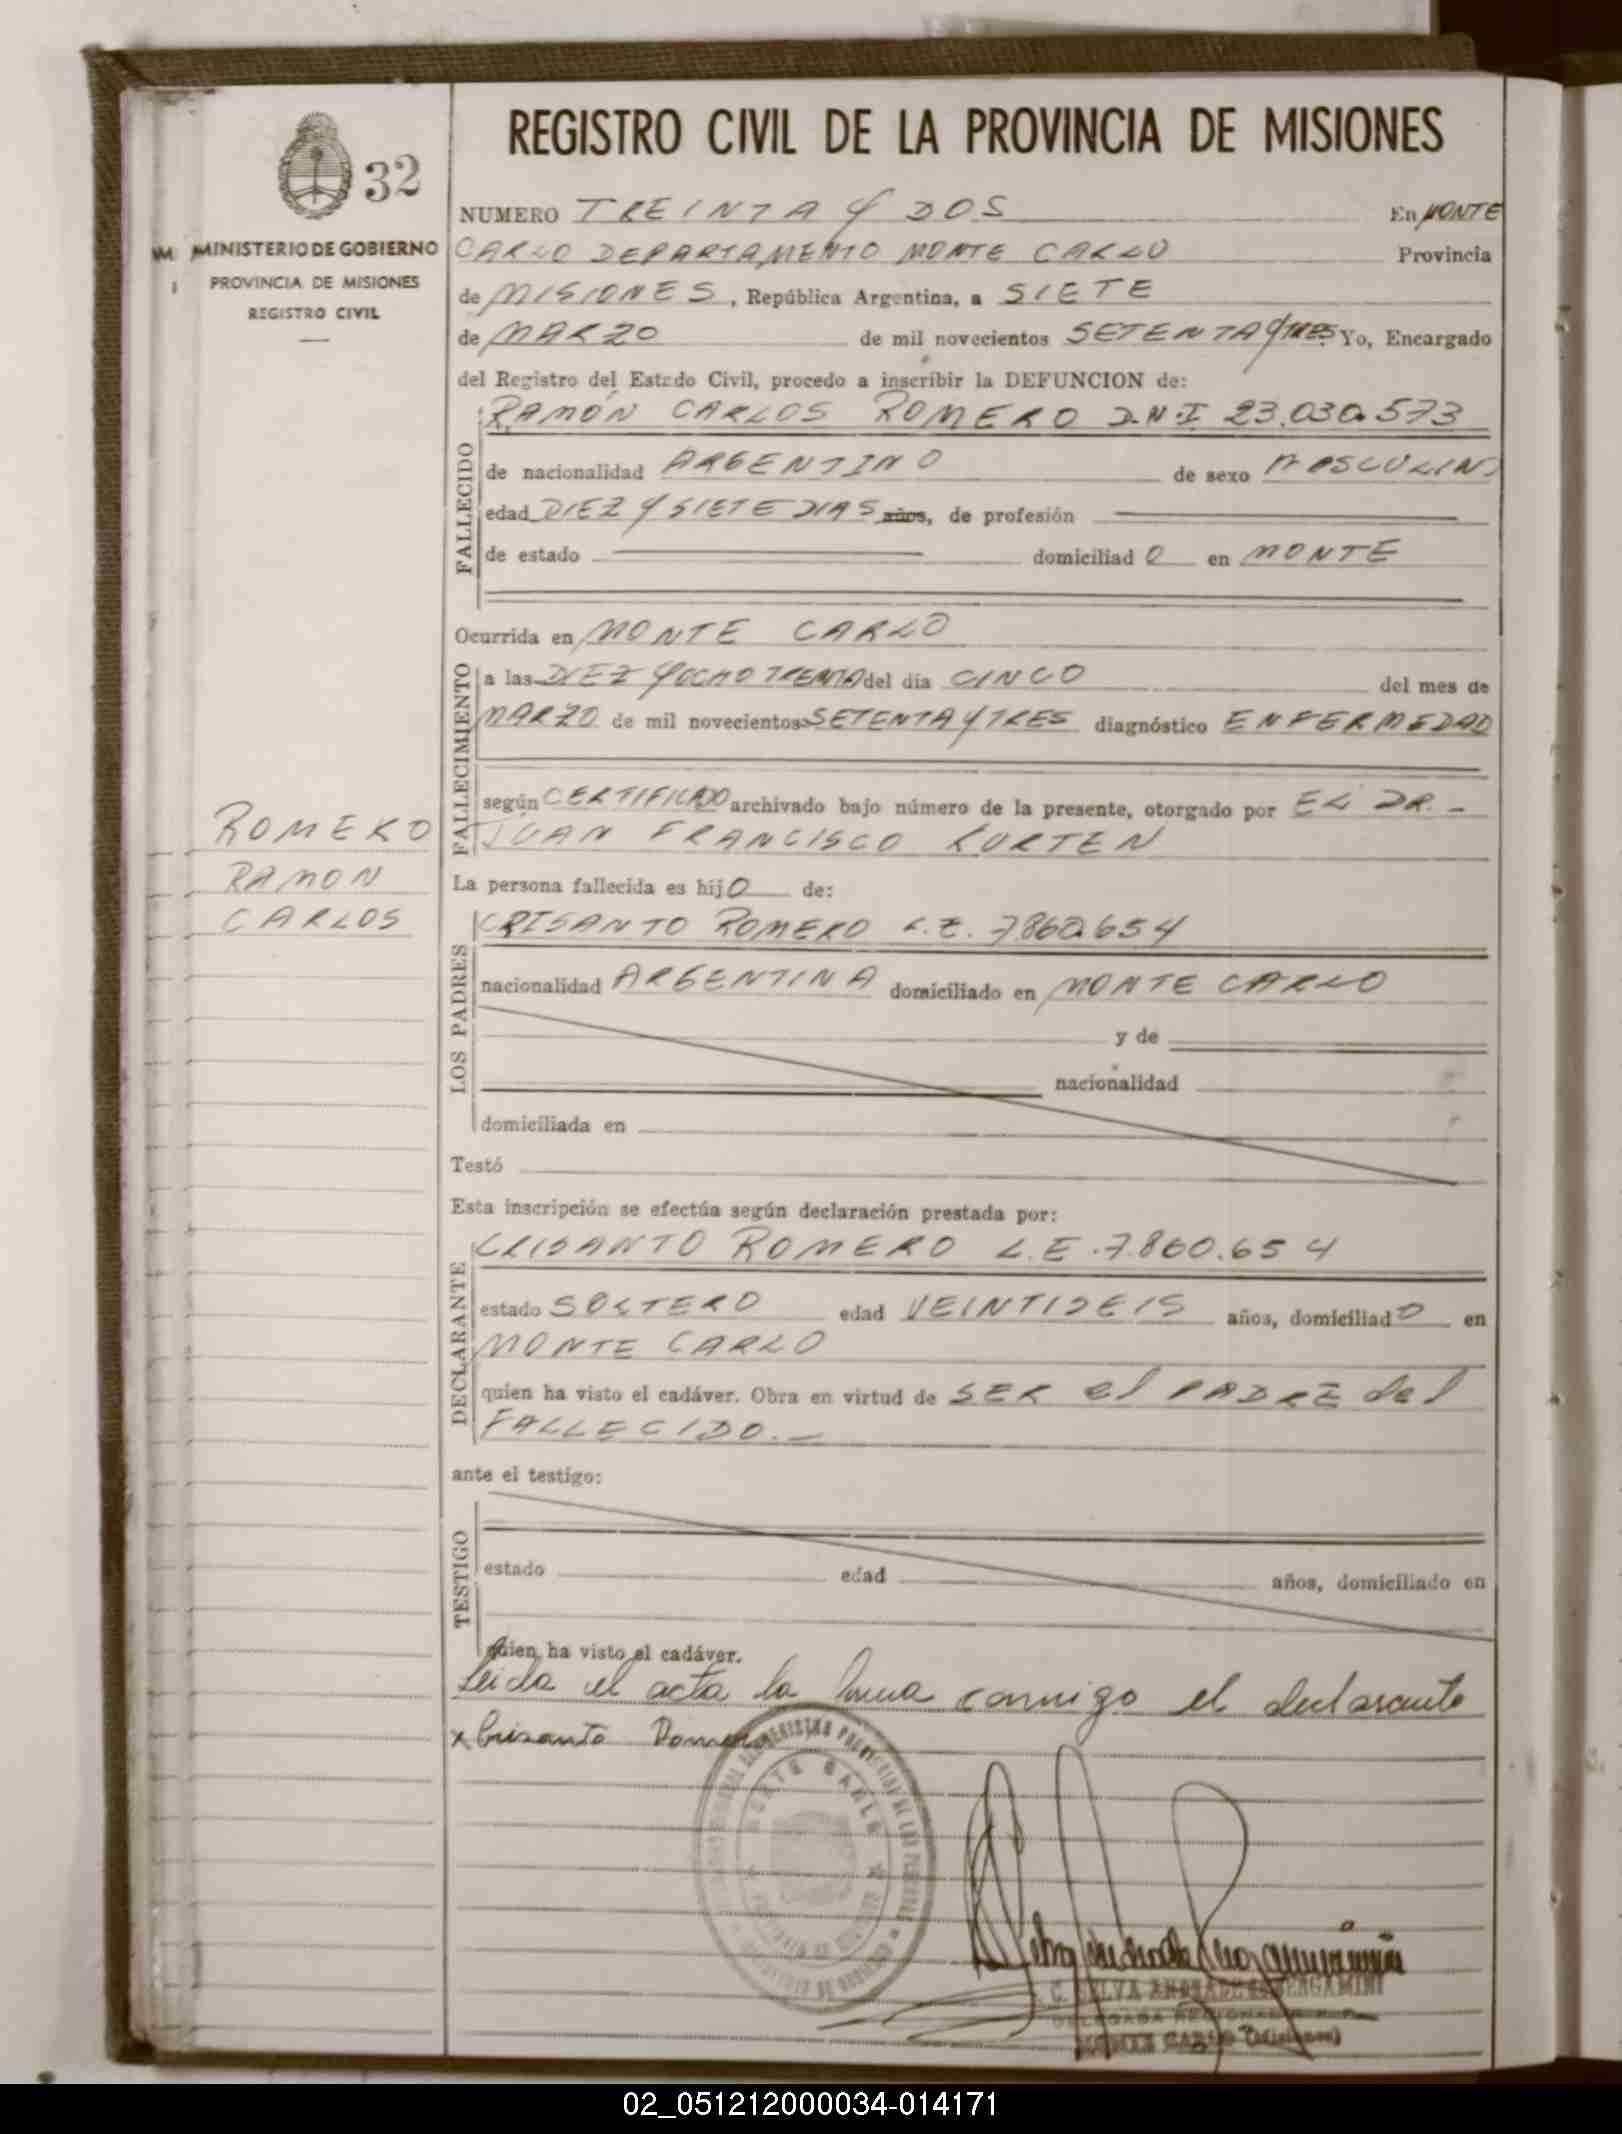 REGISTRO CIVIL DE LA PROVINCIA DE MISIONES
32
MINISTERIO DE GOBIERNO
PROVINCIA DE MISIONES
REGISTRO CIVIL
NUMERO TREINTA Y DOS En MONTE
CARLO DEPARTAMENTO MONTE CARLO Provincia
de MISIONES, República Argentina, a SIETE
de MARZO de mil novecientos SETENTA Y TRES Yo, Encargado
del Registro del Estado Civil, procedo a inscribir la DEFUNCION de:
FALLECIDO
RAMÓN CARLOS ROMERO D.N.I 23.030.573
de nacionalidad ARGENTINO de sexo MASCULINO
edad DIEZ Y SIETE DIAS años, de profesión
de estado domiciliad O en MONTE
Ocurrida en MONTE CARLO
FALLECIMIENTO
a las DIEZ Y OCHO TREINTA del día CINCO del mes de
MARZO de mil novecientos SETENTA Y TRES diagnóstico ENFERMEDAD
según CERTIFICADO archivado bajo número de la presente, otorgado por EL DR. -
JUAN FRANCISCO KURTEN
ROMERO
RAMON
CARLOS
La persona fallecida es hijO de:
LOS PADRES
CRISANTO ROMERO L.E. 7.860.654
nacionalidad ARGENTINA domiciliado en MONTE CARLO
y de
nacionalidad
domiciliada en
Testó
Esta inscripción se efectúa según declaración prestada por:
DECLARANTE
CRISANTO ROMERO L.E. 7.860.654
estado SOLTERO edad VEINTISEIS años, domiciliad O en
MONTE CARLO
quien ha visto el cadáver. Obra en virtud de SER el PADRE del
FALLECIDO. -
ante el testigo:
TESTIGO
estado edad años, domiciliado en
quien ha visto el cadáver.
Leida el acta la firma conmigo el declarante
x Crisanto Romero
MONTE CARLO
C. SELVA ANDRADE de BERGAMINI
MONTE CARLO (Misiones)
02_051212000034-014171